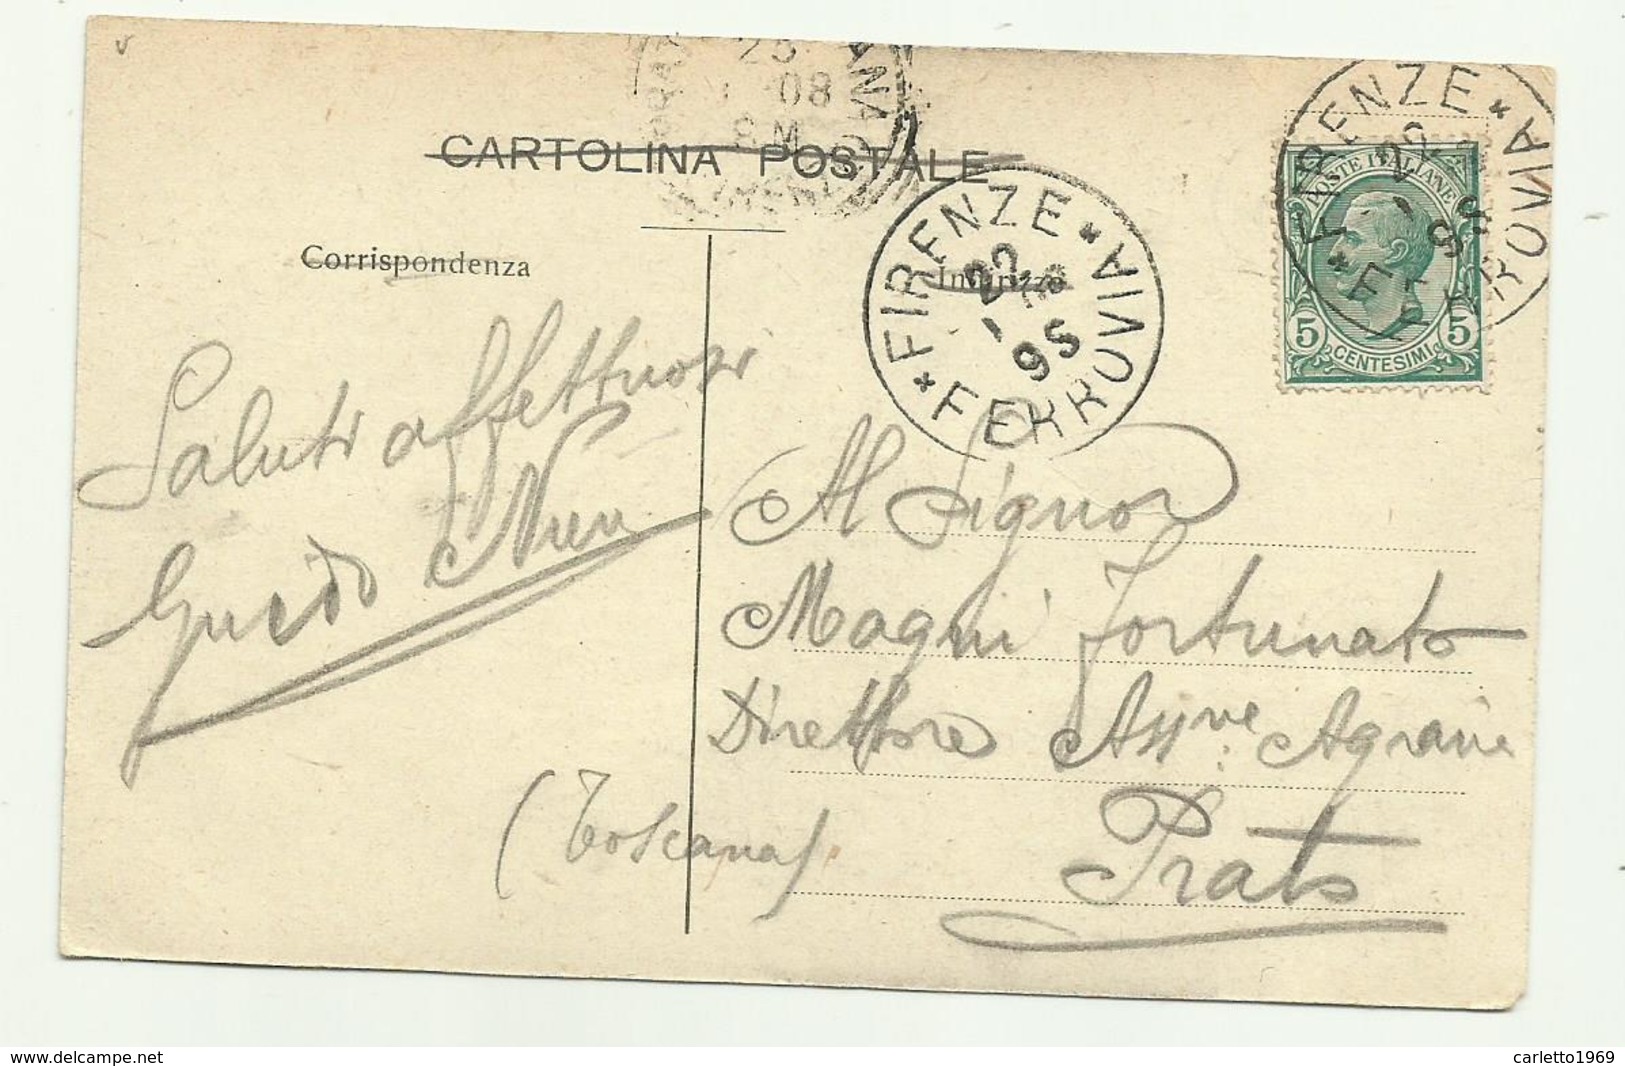 25
08
CARTOLINA POSTALE
Corrispondenza
Indirizzo
* FIRENZE * FERROVIA
22
1
FIRENZE * FERROVIA *
22
1
POSTE ITALIANE
5 CENTESIMI 5
Saluti affettuosi
Guido
Al Signor
Magni Fortunato
Direttore Assne: Agraria
Prato
(Toscana)
www.delcampe.net
carletto1969